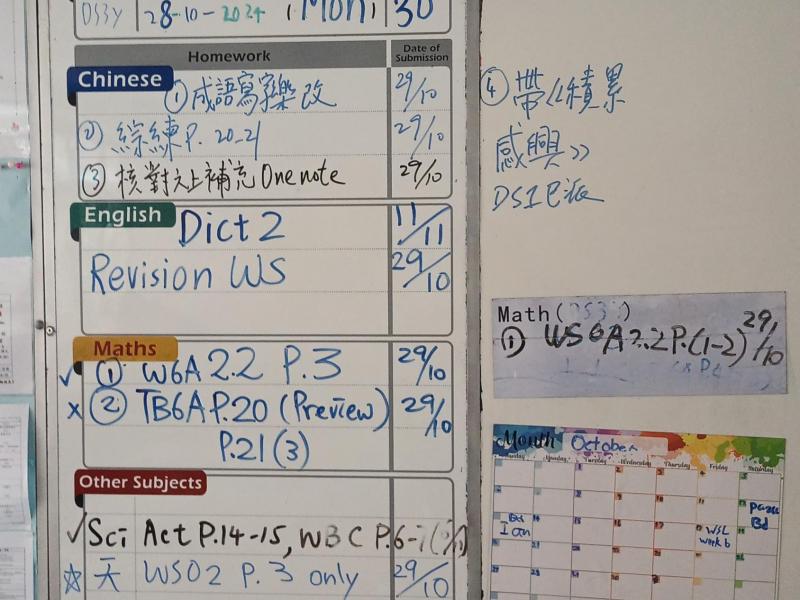 28-10-2024 (Mon) 30
Homework Date of Submission
Chinese
① 成語寫樂改 29/10
② 綜練P. 20-21 29/10
③ 核對文上補充 One note 29/10
English
Dict 2 11/11
Revision WS 29/10
Maths
✓ ① W6A 2.2 P.3 29/10
x ② TB6A P.20 (Preview) 29/10
P.21 (3)
Other Subjects
✓ Sci Act P.14-15, WB C P.6-7
☆ 天 WS02 P.3 only 29/10
④ 帶《積累
感興》
DSI 已派
Math (DS3 )
① WS 6A 2.2 P.(1-2) 29/10
Month October
Monday Tuesday Wednesday Thursday Friday Saturday
Bd
WSL
week 6